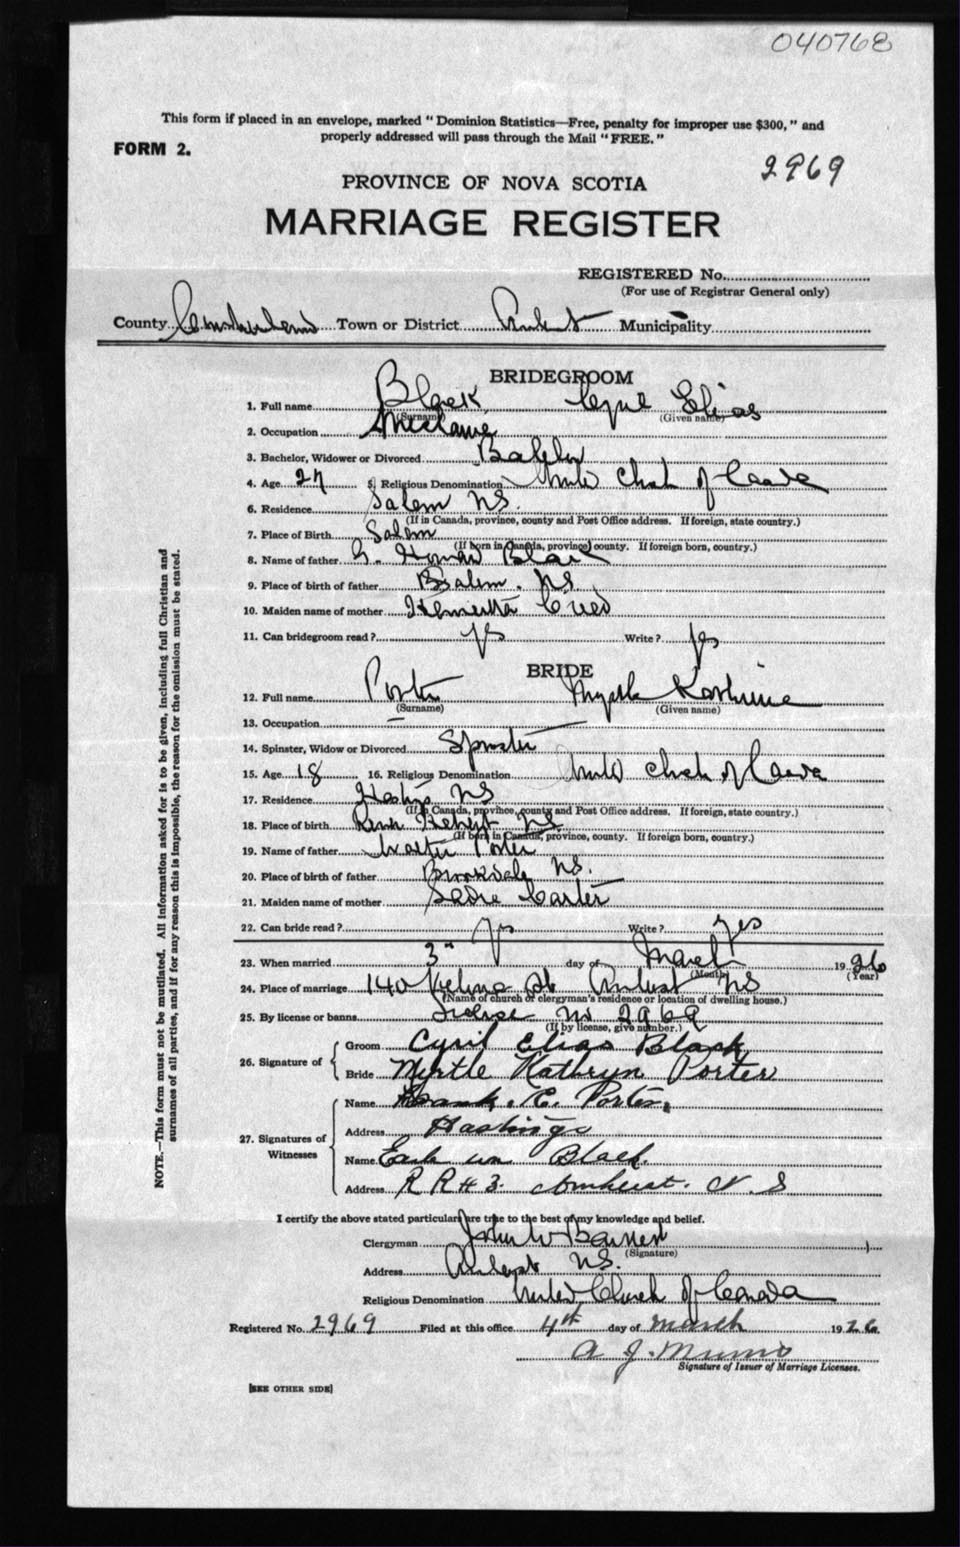 040768
This form if placed in an envelope, marked "Dominion Statistics—Free, penalty for improper use $300," and
properly addressed will pass through the Mail "FREE."
FORM 2.
2969
PROVINCE OF NOVA SCOTIA
MARRIAGE REGISTER
REGISTERED No.
(For use of Registrar General only)
County Cumberland Town or District Amherst Municipality
BRIDEGROOM
1. Full name Black Elias
(Surname) (Given name)
2. Occupation
3. Bachelor, Widower or Divorced Bachelor
4. Age 27 5. Religious Denomination United Church of Canada
6. Residence Salem N.S.
(If in Canada, province, county and Post Office address. If foreign, state country.)
7. Place of Birth Salem
(If born in Canada, province, county. If foreign born, country.)
8. Name of father Black
9. Place of birth of father Salem. N.S.
10. Maiden name of mother Henrietta
11. Can bridegroom read? yes Write? yes
BRIDE
12. Full name Porter Myrtle
(Surname) (Given name)
13. Occupation —
14. Spinster, Widow or Divorced Spinster
15. Age 18 16. Religious Denomination United Church of Canada
17. Residence Hastings NS
(If in Canada, province, county and Post Office address. If foreign, state country.)
18. Place of birth NS
(If born in Canada, province, county. If foreign born, country.)
19. Name of father Walter Porter
20. Place of birth of father Brookdale NS.
21. Maiden name of mother Sadie Carter
22. Can bride read? yes Write? yes
23. When married 3rd day of March 1926
(Month) (Year)
24. Place of marriage 140 St Amherst NS
(Name of church or clergyman's residence or location of dwelling house.)
25. By license or banns License No 2969
(If by license, give number.)
26. Signature of
Groom Cyril Elias Black
Bride Myrtle Kathryn Porter
27. Signatures of Witnesses
Name Porter
Address Hastings
Name Black
Address R R # 3. Amherst. N. S
I certify the above stated particulars are true to the best of my knowledge and belief.
Clergyman John W
(Signature)
Address Amherst NS.
Religious Denomination United Church of Canada
Registered No. 2969 Filed at this office 4th day of March 1926
A J. Munro
Signature of Issuer of Marriage Licenses.
[SEE OTHER SIDE]
NOTE.—This form must not be mutilated. All information asked for is to be given, including full Christian and
surnames of all parties, and if for any reason this is impossible, the reason for the omission must be stated.